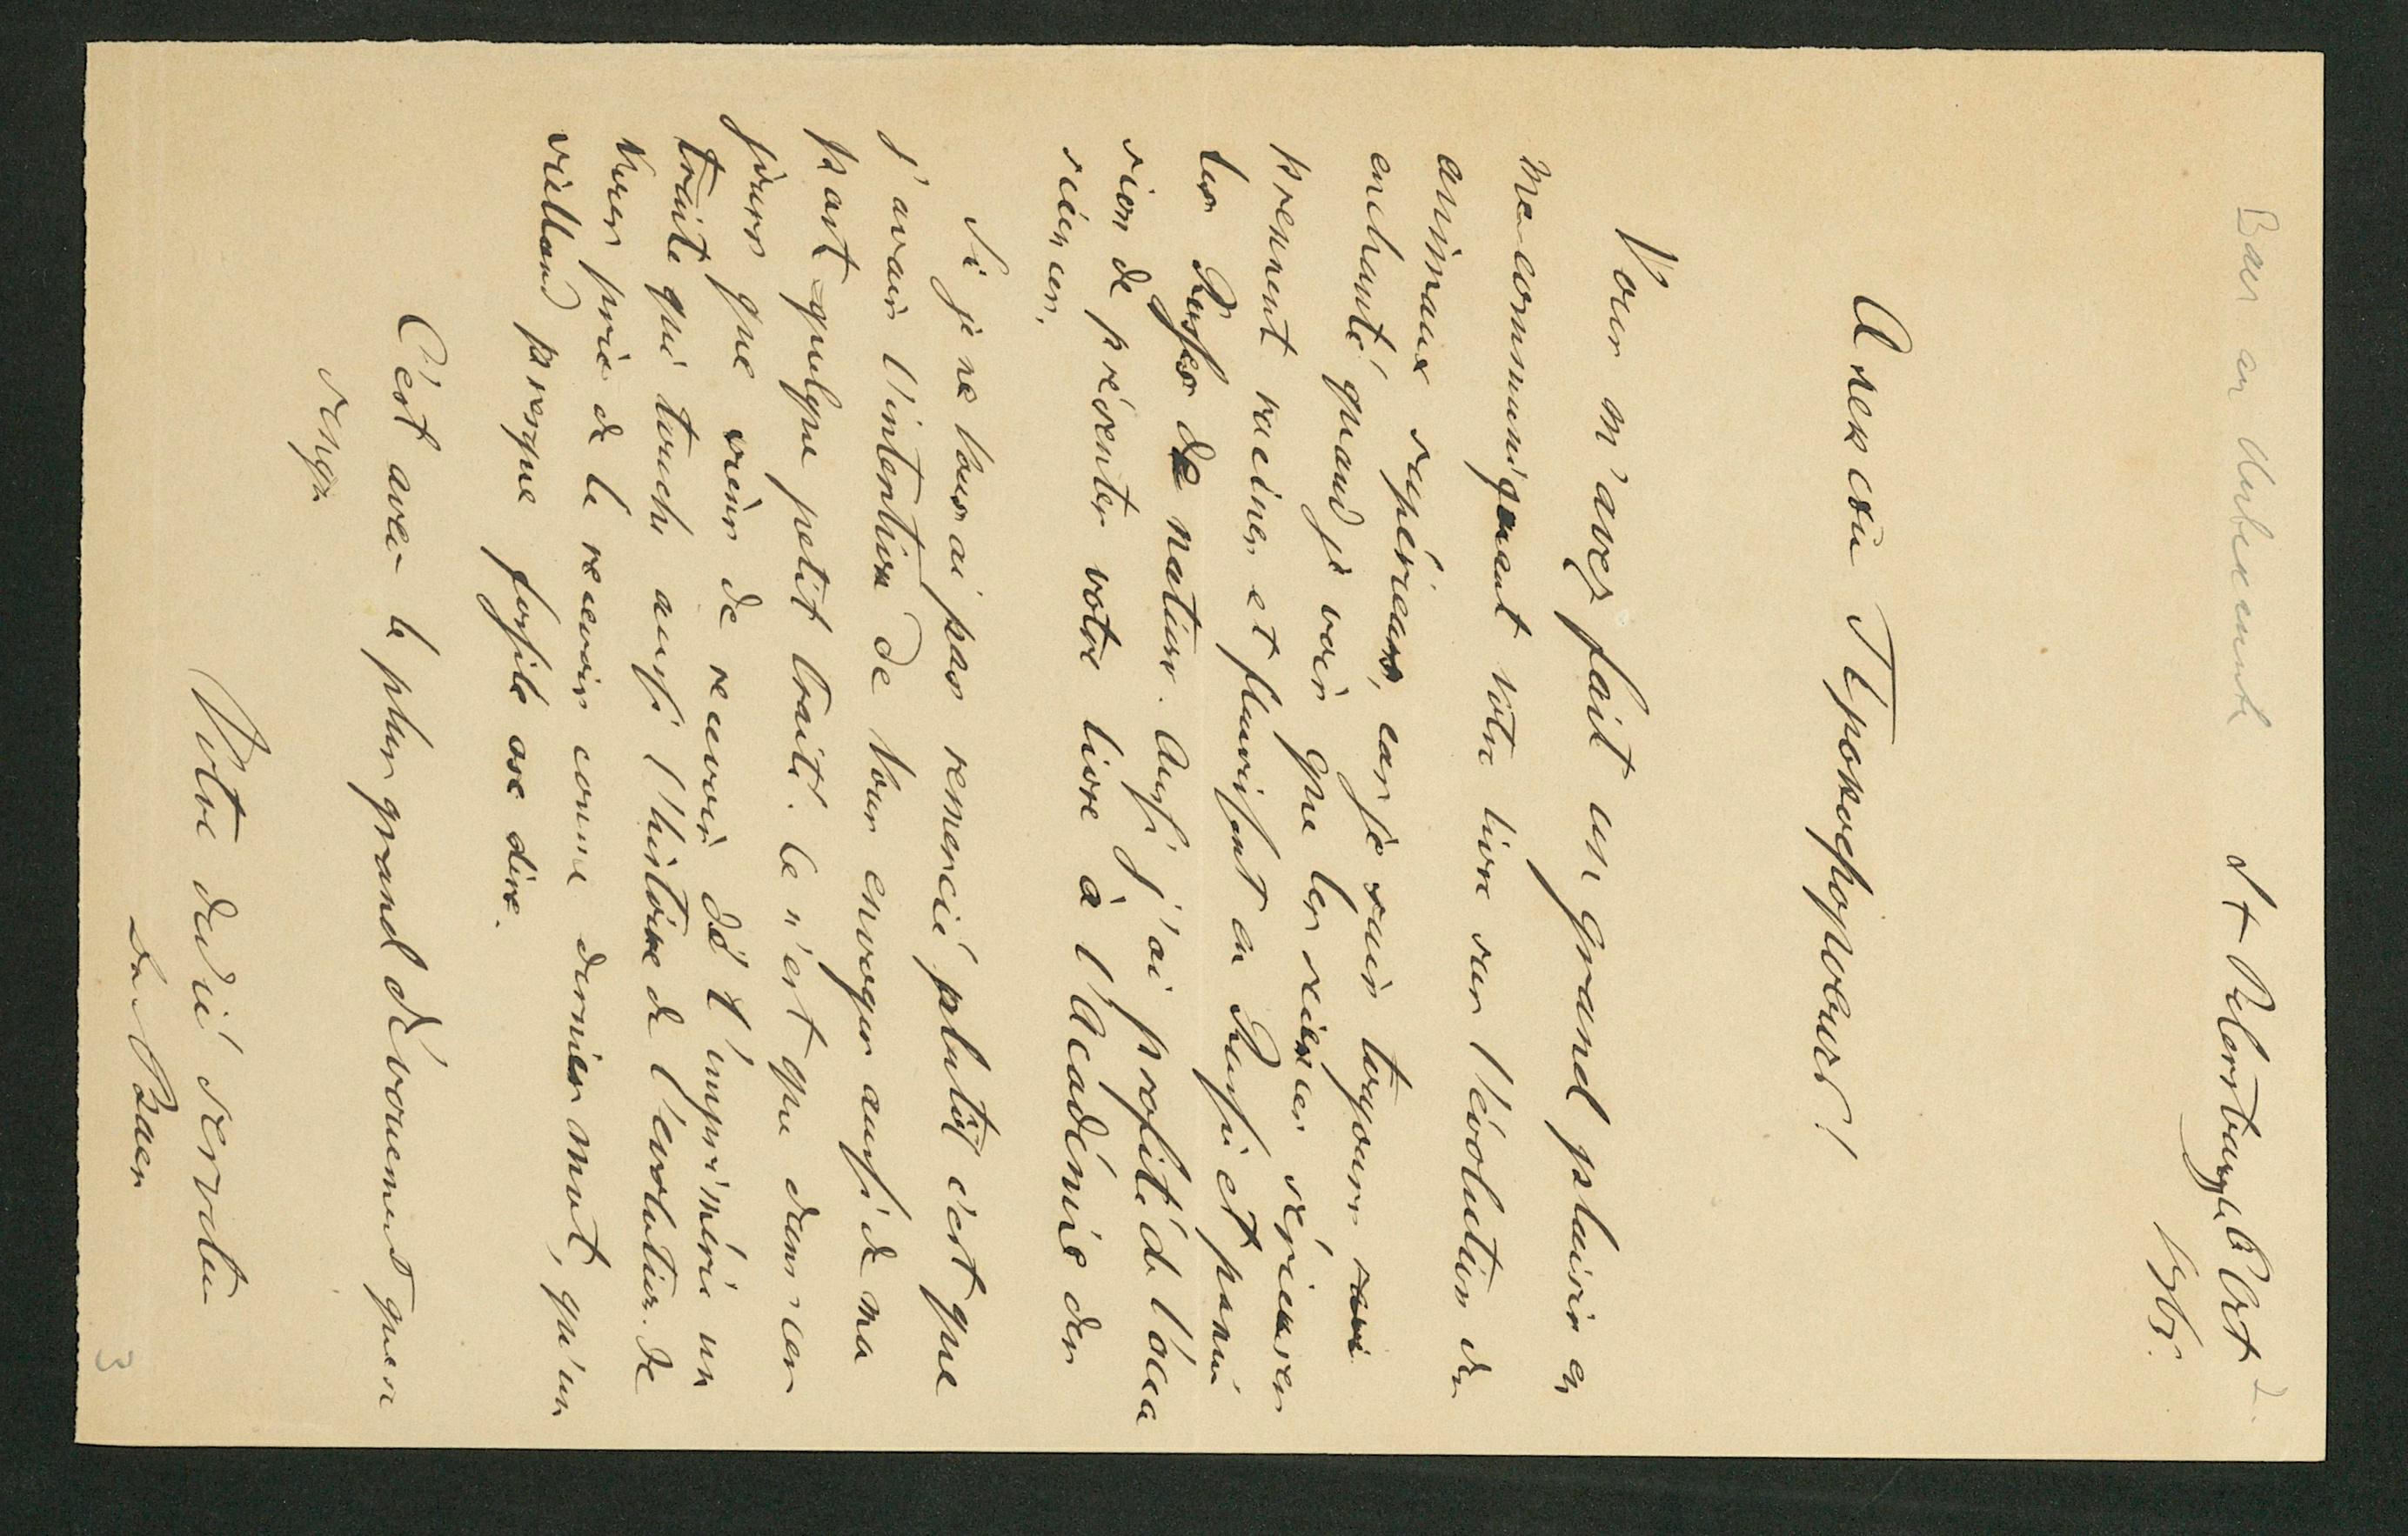 Baer an Unbekannte
St Petersbourg le 6 Oct
1865.
Алексѣй Прокофорович!
Vous m'avez fait un grand plaisir en
me communiquant votre livre sur l'évolution des
animaux supérieurs, car je suis toujours ravi
enchanté quand je vois que les sciences sérieuses
prennent racines et fleurissent en Russie et parmi
les Russes de nature. Aussi j'ai profité de l'occa
sion de présenter votre livre à l'Académie des
sciences.
Si je ne vous ai pas remercié plutôt c'est que
j'avais l'intention de vous envoyer aussi de ma
part quelque petit traité. Ce n'est que dans ces
jours que viens de recevoir dé l'imprimérie un
traité qui touche aussi l'histoire de l'evolution. Je
vous prie de le recevoir comme dernier mot, qu'un
vieillard presque fossile ose dire.
C'est avec le plus grand dévouement que je
signe
Votre dévoué serviteur
de Baer
3